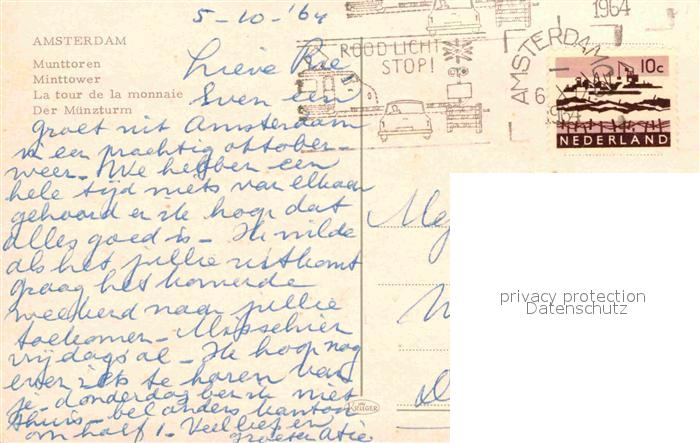 5-10-'64
AMSTERDAM
Munttoren
Minttower
La tour de la monnaie
Der Münzturm
Lieve Ree
Even een
groet uit Amsterdam
in een prachtig oktober-
weer. We hebben een
hele tijd niets van elkaar
gehoord en ik hoop dat
alles goed is - Ik wilde
als het jullie uitkomt
graag het komende
weekend naar jullie
toekomen - Misschien
vrijdags al - Ik hoop nog
even iets te horen van
je - donderdag ben ik niet
thuis - bel anders kantoor
om half 1 - Veel liefs en
groeten Atie
KRÜGER
1964
ROOD LICHT
STOP!
AMSTERDAM
6 X
1964
10c
NEDERLAND
privacy protection
Datenschutz